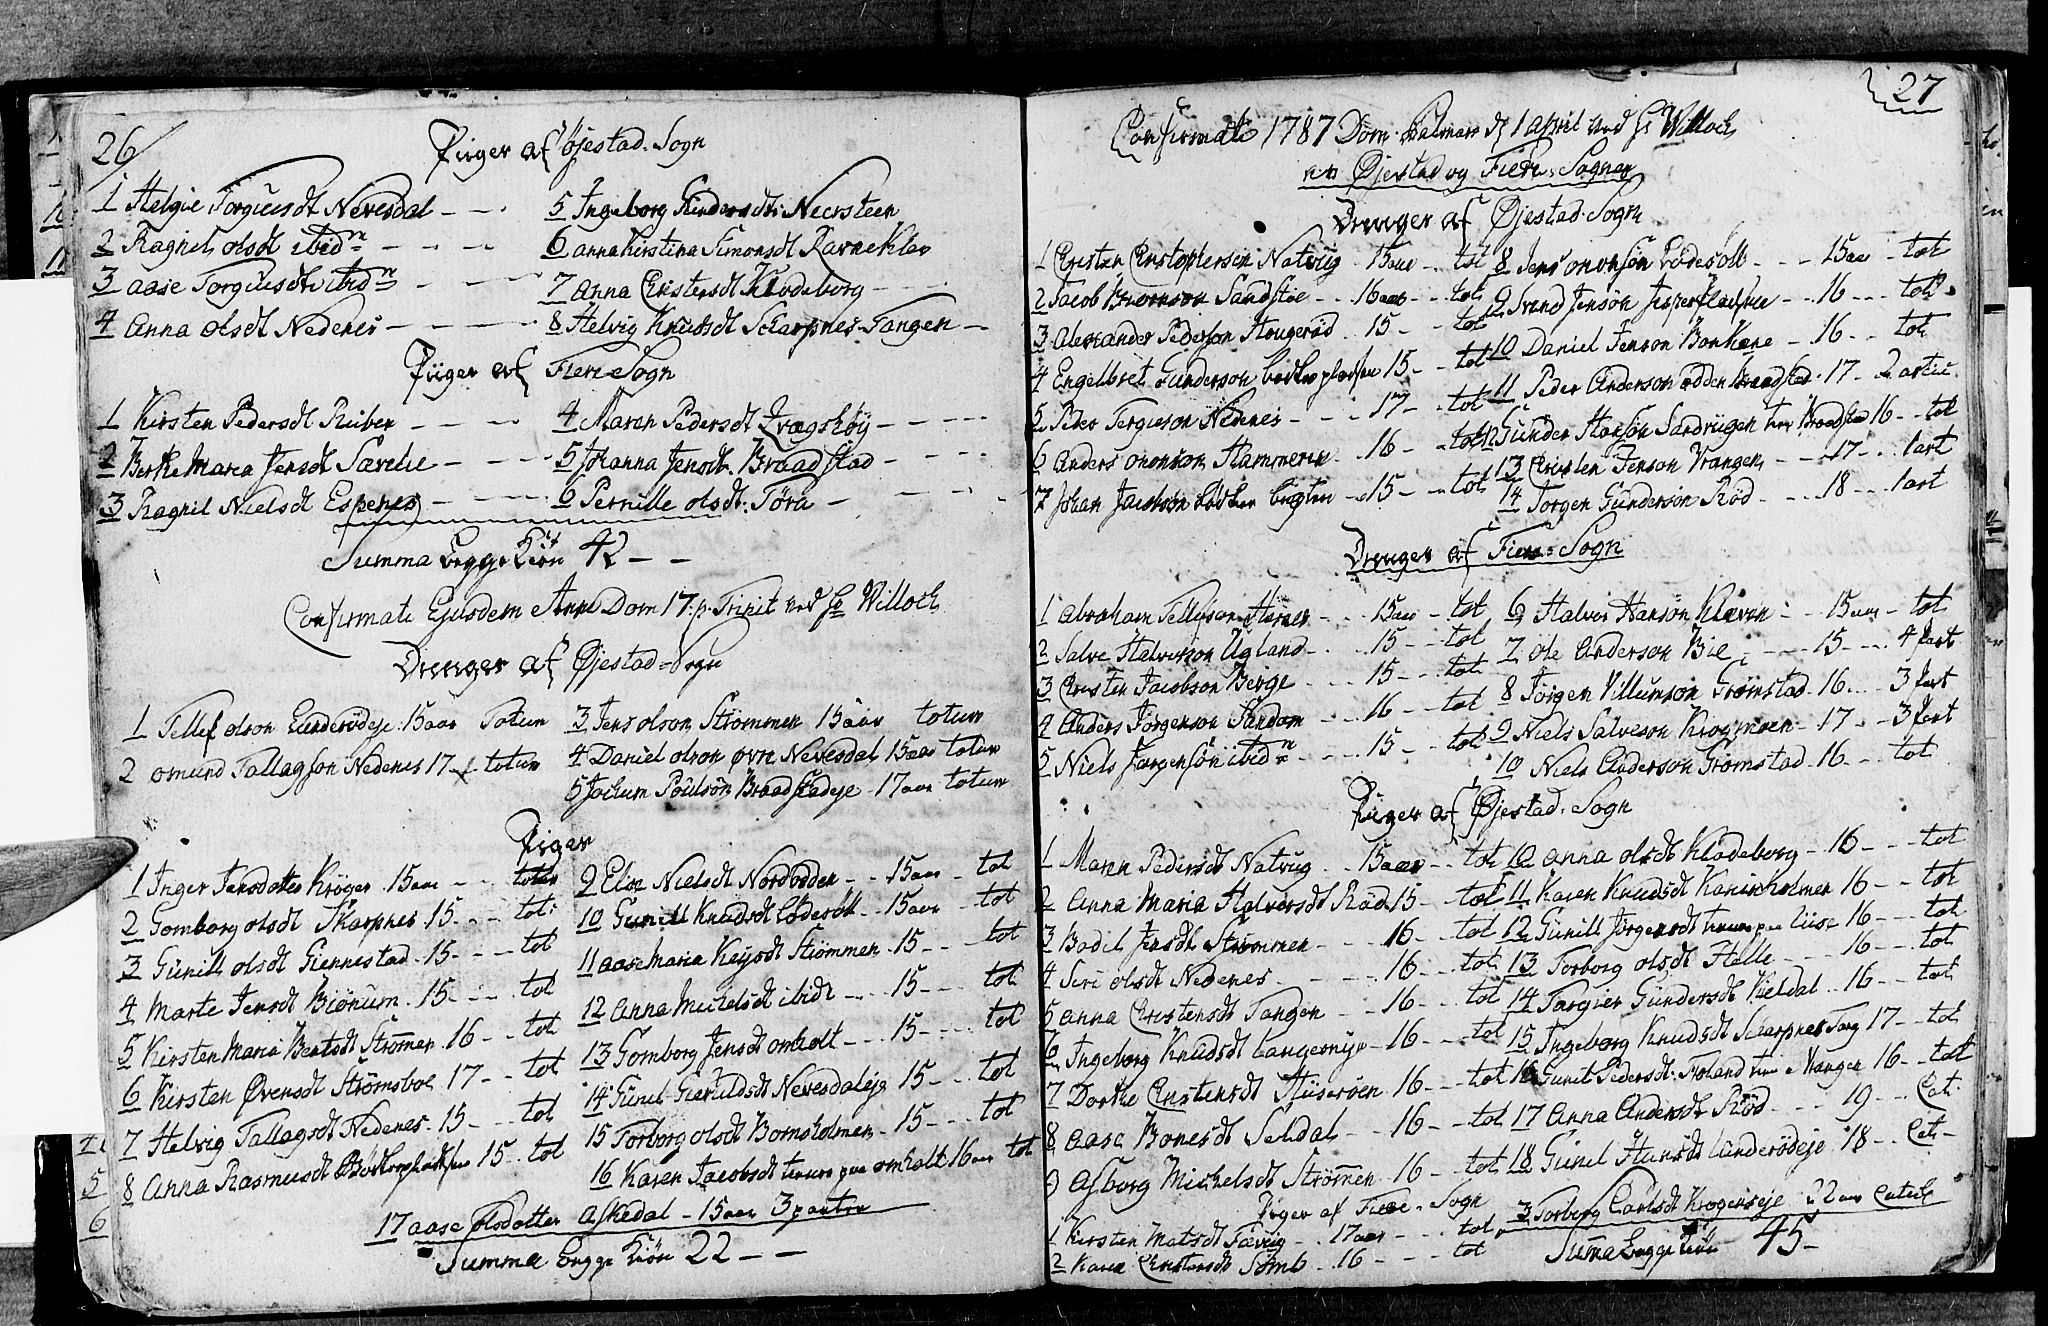 26
Piiger af Øjestad Sogn
1 Helgie Torgiusdt Nevesdal
2 Ragnel olsdt ibidm
3 aase Torgiusdt ibidm
4 Anna olsdt Nedenes
5 Ingeborg
6 anna Kirstina Simonsdt Ravneklev
7 Anna Christensdt Klodeborg
8 Helvig Knudsdt Scharpnes Tangen
Piiger af Fiere Sogn
1 Kirsten Pedersdt Ruiber
2 Berthe Maria Jensdt Særelie
3 Ragnil Nielsdt Espenes
4 Maren Pedersdt
5 Johanna Jensdt Braadstad
6 Pernille olsdt
Summa begge Kiön 42
Confirmate Ejusdem Anni Dom 17 p. Trinit ved Hr Willoch
Drenger af Øjestad Sogn
1 Tellef olson Lunderödeje 15 aar Totum
2 omund Tallagson Nedenes 17 totum
3 Jens olson Strømmen 15 aar totum
4 Daniel olson øvre Nevesdal 15 aar totum
5 Jochum Poulsön Braadstadeje 17 aar totum
Piger
1 Inger Jensdotter Krøger 15 aar totum
2 Gomborg olsdt Skarpnes 15 tot
3 Günill olsdt Giennestad 15 tot
4 Marte Jensdt Biönum 15 tot
5 Kirsten Maria Bentsdt Strømen 16 tot
6 Kirsten Øvensdt Strømsboe 17 tot
7 Helvig Tallagsdt Nedenes 15 tot
8 Anna Rasmusdt 15 tot
9 Else Nielsdt Nordodden 15 aar tot
10 Gunill Knudsdt Lödesöll 15 aar tot
11 aase Maria Keysdt Strömmen 15 tot
12 Anna Michelsdt ibidt 15 tot
13 Gomborg Jensdt omholt 15 tot
14 Günil Gierulsdt Nevesdaleje 15 tot
15 Torborg olsdt Bornsholmen 15 tot
16 Karen Jacobsdt tienne paa omholt 16 aar tot
17 aase olsdotter Askedal 15 aar 3 parter
Summa begge Kiön 22
27
Confirmate 1787 Dom. Palmarum d 1 April ved Hr Willoch
Øjestad og Fiere Sogner
Drenger af Øjestad Sogn
1 Christen Christophersen Natvig 15 aar tot
2 Jacob Sandstöe 16 aar tot
3 Alexander Pederson Hougeröd 15 tot
4 Engelbret Gunderson bødker pladsen 15 tot
5 Peder Tergieson Nedenes 17 tot
6 Anders Hammeren 16 tot
7 Johan Jacobson 15 tot
8 Jens Lödesöll 15 aar tot
9 Svend Jensön Jesperpladsen 16 tot
10 Daniel Jenson Bonkene 16 tot
11 Peder Anderson odden Braadstad 17 2 artic
12 Günder Hansön 16 tot
13 Christen Jenson Vrangen 17 1 art
14 Jorgen Günderson Röd 18 1 art
Drenger af Fiere Sogn
1 Abraham Tellefson 15 aar tot
2 Salve Halverson Ugland 15 tot
3 Christen Jacobson Berge 15 tot
4 Anders Jorgenson Sandom 16 tot
5 Niels Jorgensön ibidm 15 tot
6 Halvor Hansön Kleven 15 aar tot
7 Ole Anderson Bie 15 4 part
8 Jörgen Villumson Grömstad 16 3 part
9 Niels Salveson Krogmoen 17 3 part
10 Niels Anderson Grömstad 16 tot
Piiger af Øjestad Sogn
1 Maren Pedersdt Natvig 15 aar tot
2 Anna Maria Halversdt Röd 15 tot
3 Bodil Jensdt Strömmen 16 tot
4 Siri olsdt Nedenes 16 tot
5 Anna Christensdt Tangen 16 tot
6 Ingeborg Knudsdt Langesnje 16 tot
7 Dorthe Christensdt 16 tot
8 Aase Bonesdt Seldal 16 tot
9 Asborg Michelsdt Strömen 16 tot
10 anna olsdt Klodeborg 16 tot
11 Karen Knudsdt Kaninholmen 16 tot
12 Günill Jörgensdt 16 tot
13 Torborg olsdt Helle 16 tot
14 Torgier Gündersdt Kieldal 16 tot
15 Ingeborg Knudsdt Scharpnes 17 tot
16 Gunil Pedersdt 16 tot
17 Anna Andersdt Röd 19 Cat
18 Günil Hansdt Lunderödeje 18 Cat
Piger af Fiere Sogn
1 Kirsten Matsdt Fævig 17 aar tot
2 Karen Christensdt Tömb 16 tot
3 Torborg Carlsdt Krogenseje 22 aar Catech
Suma begge Kiön 45